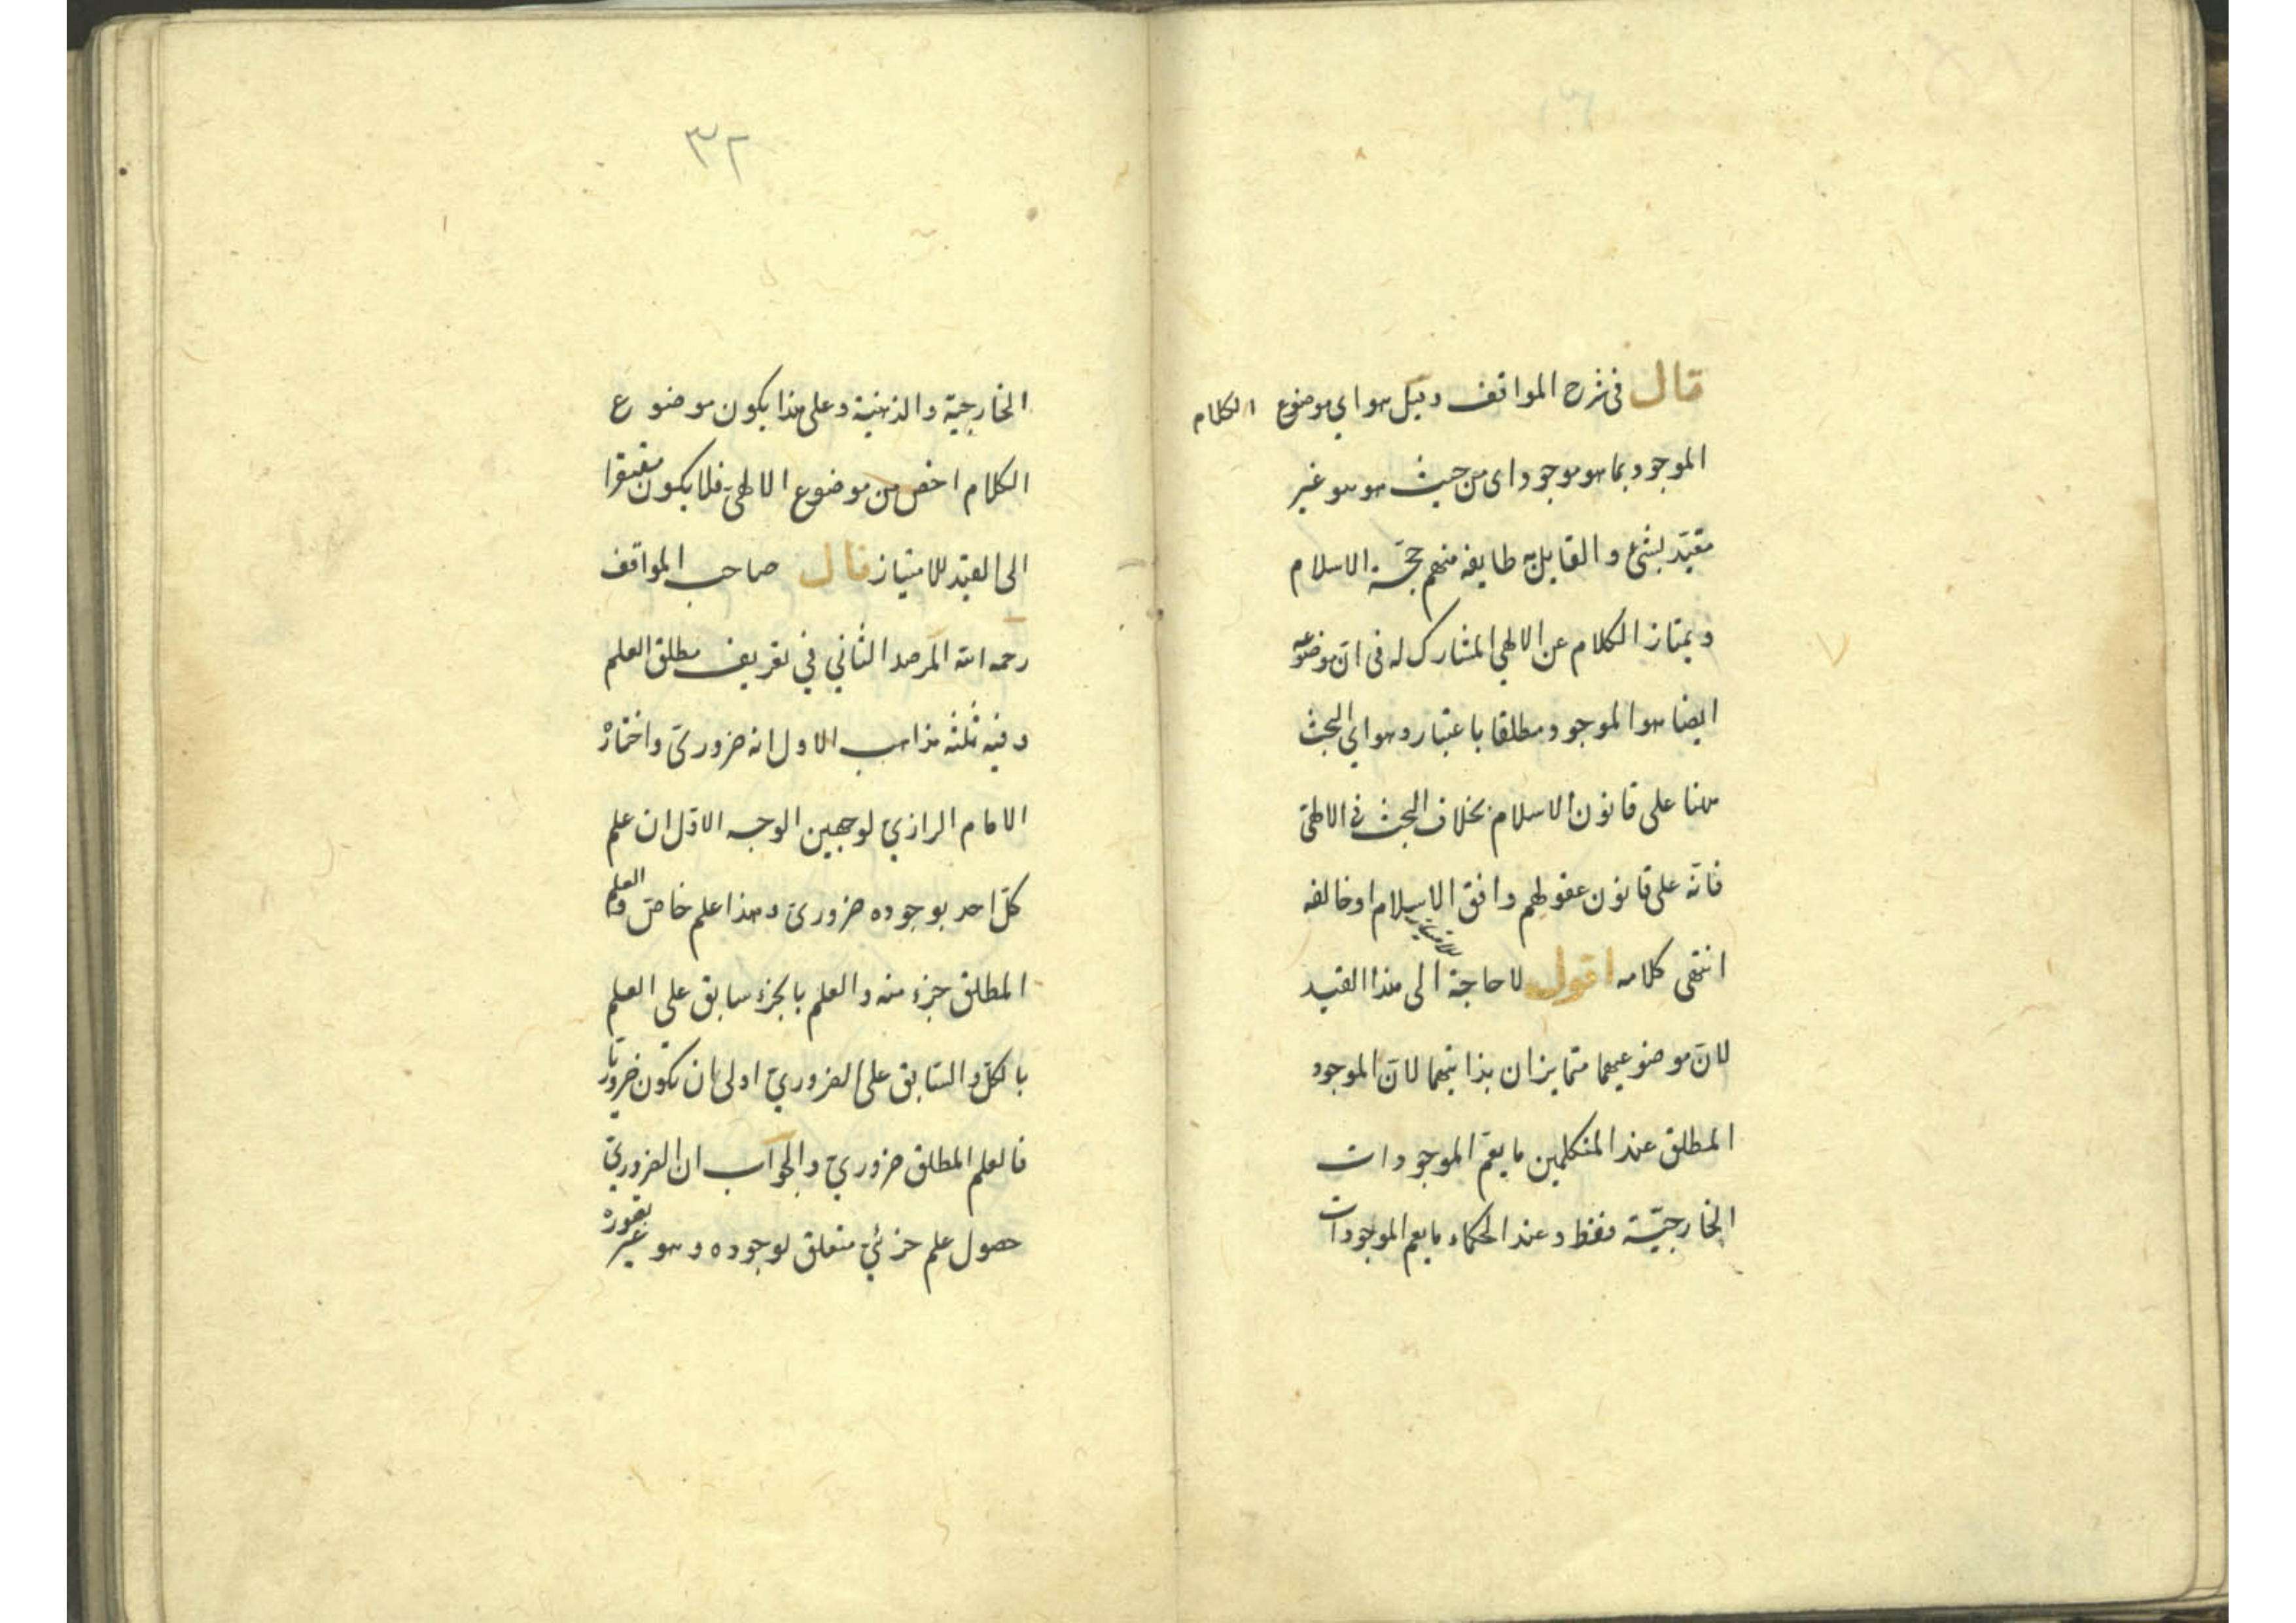 قال فى شرح المواقف وقيل هو اي موضوع الكلام
الموجود بما هو موجود اى من حيث هو هو غير
مقيّد بشئ والقايل به طايفه منهم حجّة الاسلام
ويمتاز الكلام عن الالهي المشارك له فى انّ موضوعه
ايضا هو الموجود مطلقا باعتبار وهو اي البحث
ههنا على قانون الاسلام بخلاف البحث فى الالهىّ
فانّه على قانون عقولهم وافق الاسلام او خالفه
انتهى كلامه اقول لا حاجة للامتياز الى هذا القيد
لانّ موضوعيهما متمايزان بذاتيهما لانّ الموجود
المطلق عند المتكلمين ما يعمّ الموجودات
الخارجيّة فقط وعند الحكماء ما يعم الموجودات
٣٢
الخارجيّة والذهنية وعلى هذا يكون موضوع
الكلام اخص من موضوع الالهىّ فلا يكون مفتقرا
الى القيد للامتياز قال صاحب المواقف
رحمه الله المرصد الثاني في تعريف مطلق العلم
وفيه ثلثه مذاهب الاول انه ضرورىّ واختاره
الامام الرازيّ لوجهين الوجه الاوّل ان علم
كلّ احد بوجوده ضرورىّ وهذا علم خاصّ والعلم
المطلق جزء منه والعلم بالجزء سابق على العلم
بالكلّ والسّابق على الضروريّ اولى ان يكون ضروريّا
فالعلم المطلق ضروريّ والجواب ان الضروريّ
حصول علم جزئيّ متعلق بوجوده وهو غير تصوره